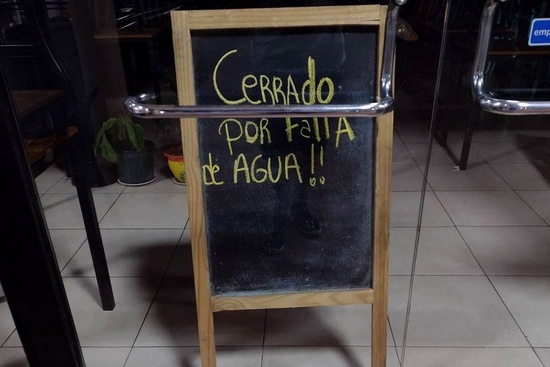 CERRAdo
POR FAllA
de AGUA!!
emp